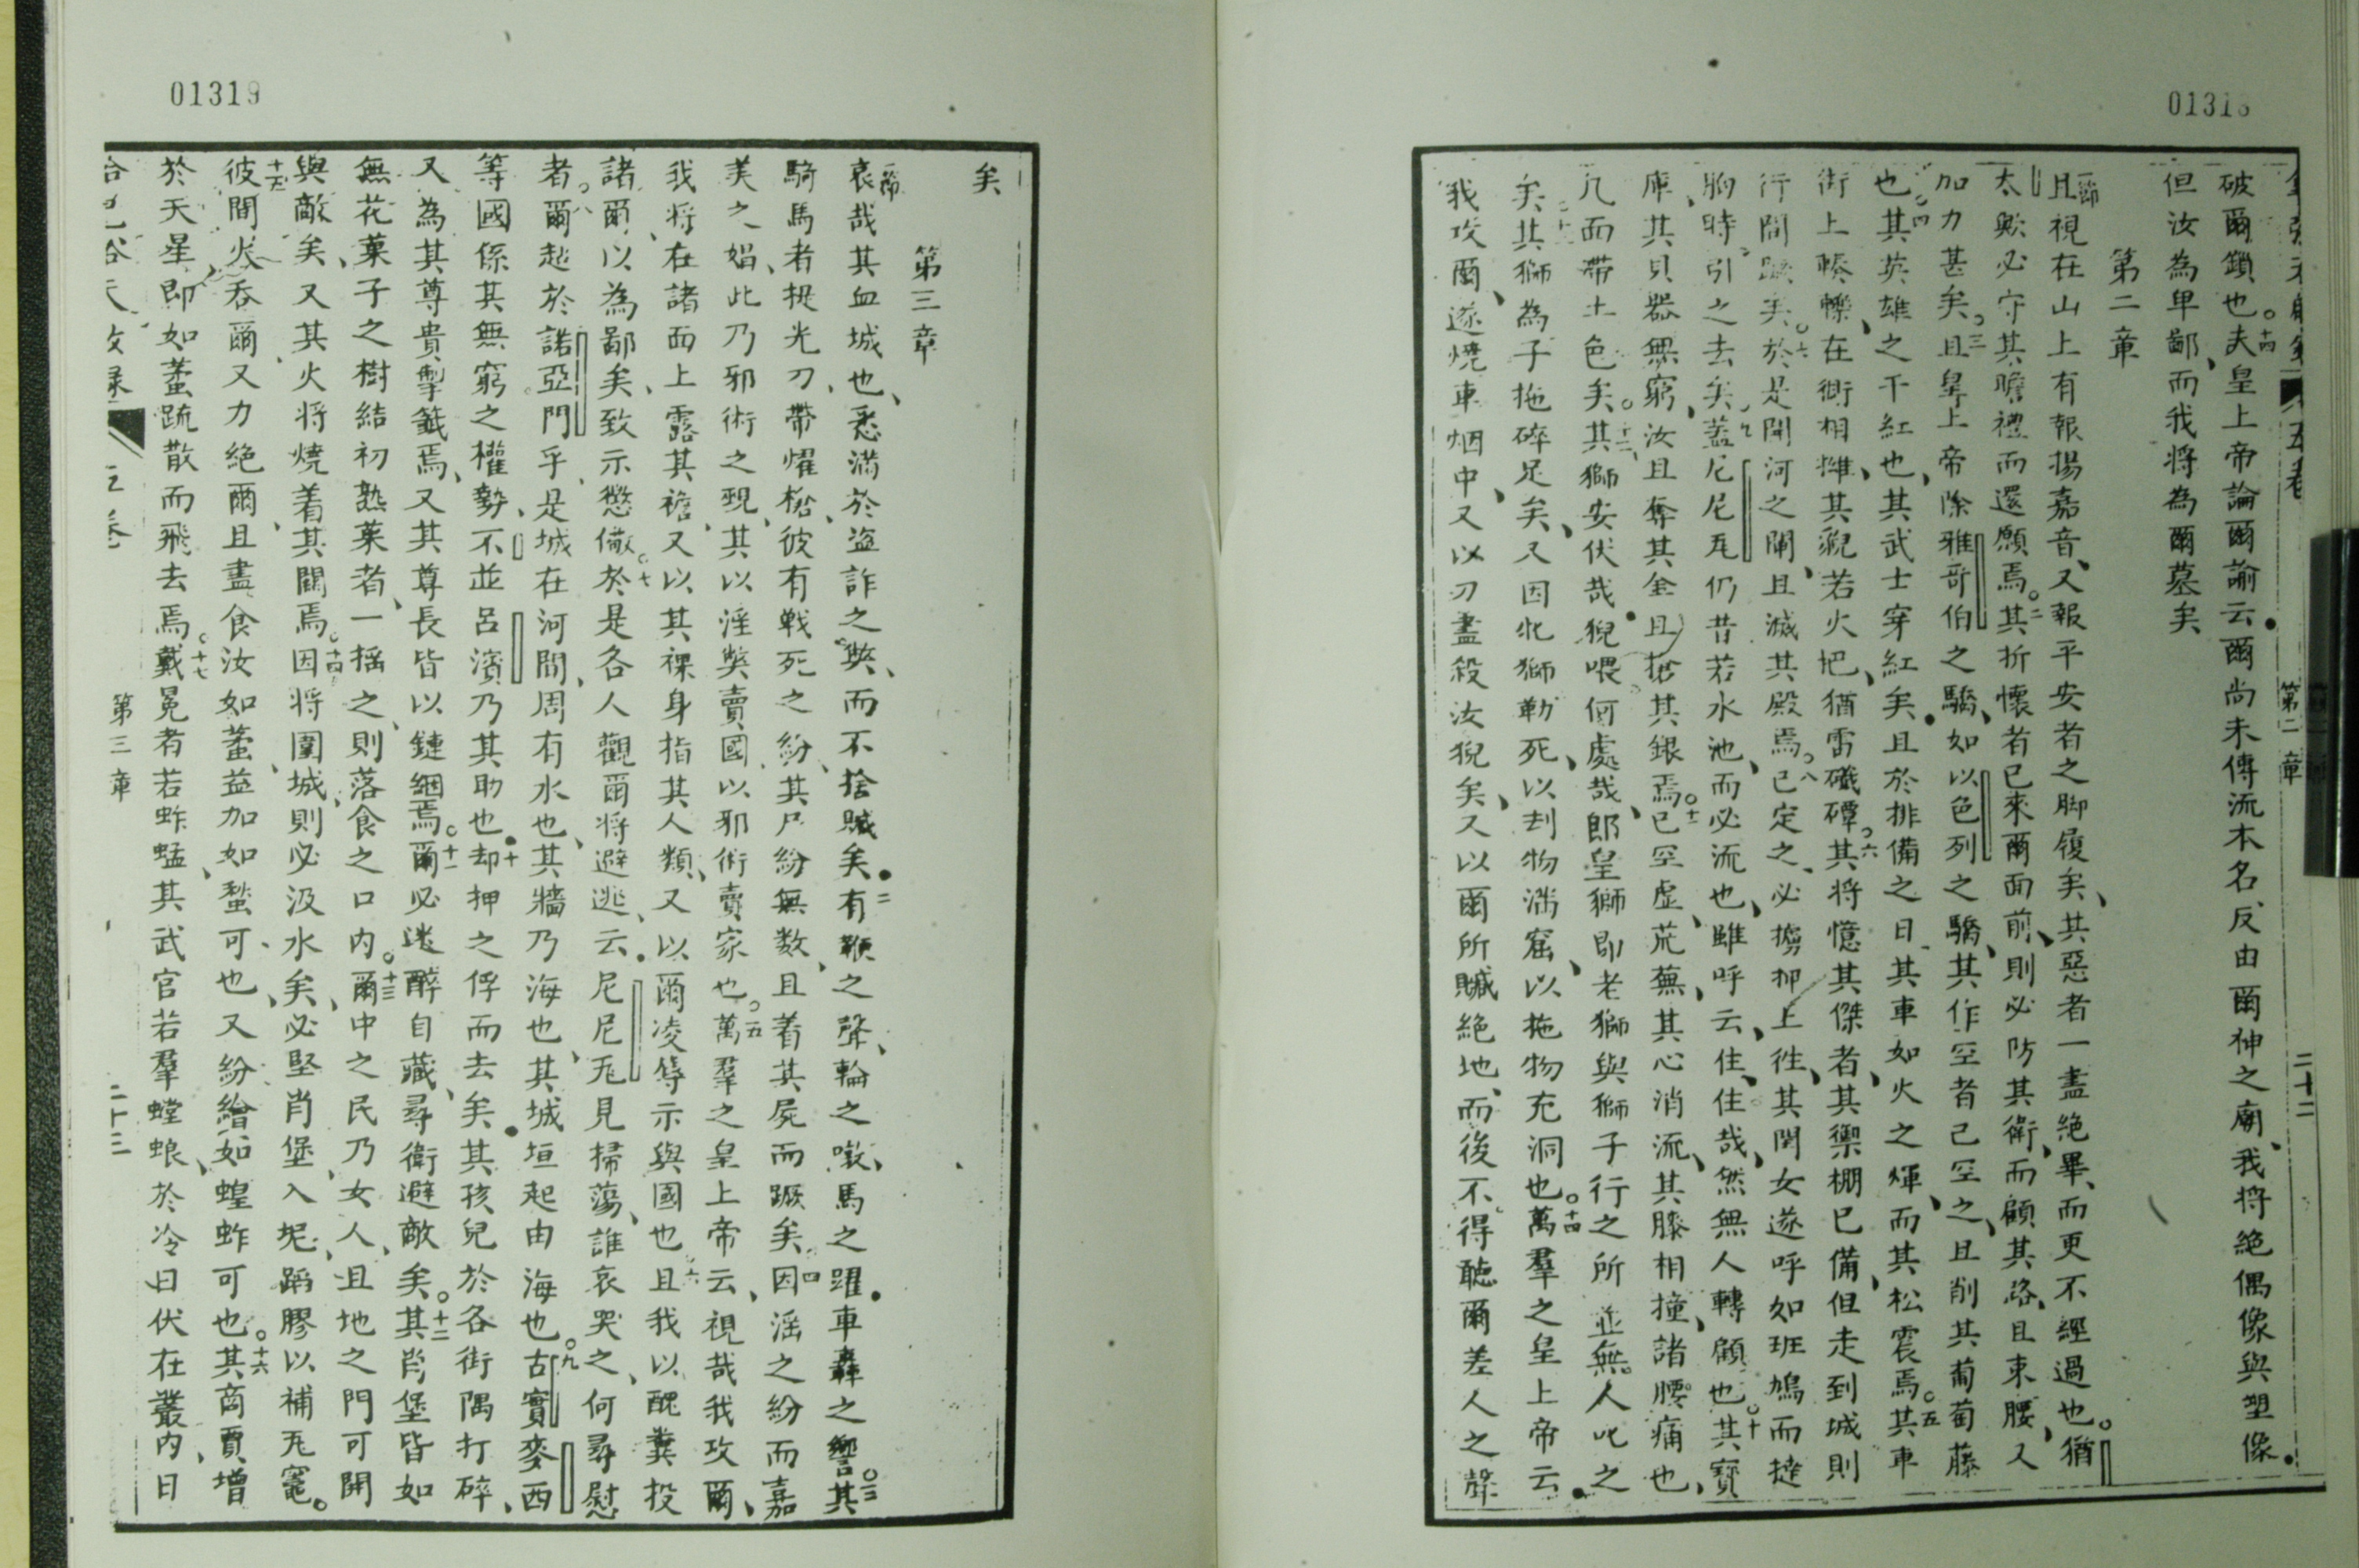 01318
破爾鎖也。十四夫皇上帝論爾諭云爾尚未傳流本名、反由爾神之廟、我将絶偶像與塑像。
但汝為卑鄙、而我将為爾墓矣
第二章
一節且視在山上有報揚嘉音、又報平安者之脚履矣、其惡者一盡絶畢、而更不經過也。猶
太歟必守其瞻禮而還願焉。二其折懷者已來爾面前、則必防其衛、而顧其路、且束腰、又
加力甚矣。三且皇上帝除雅哥伯之驕、如以色列之驕、其作空者已空之、且削其葡萄藤
也。四其英雄之干紅也、其武士穿紅矣。且於排備之日、其車如火之煇、而其松震焉。五其車
街上轃轢、在衕相摧、其貌若火把、猶雷磯磹。六其将憶其傑者、其禦棚已備、但走到城則
行間蹶矣。六於是開河之閘、且滅其殿焉。八已定之、必擄抑上徃、其閨女遂呼如班鳩而撻
胸時引之去矣。九蓋尼尼瓦仍昔若水池、而必流也、雖呼云、住、住哉、然無人轉顧也。十其寳
庫、其貝器無窮、汝且奪其金、且搶其銀焉。十一已空虛、荒蕪、其心消流、其膝相撞、諸腰痛也、
凡面帶土色矣。十二其獅安伏哉。猊喂何處哉、郎皇獅即老獅與獅子行之所、並無人叱之
矣。其獅為子拖碎足矣、又因牝獅勒死、以刦物滿窟、以拖物充洞也。十四萬羣之皇上帝云。
我攻爾、遂燒車烟中、又以刃盡殺汝猊矣、又以爾所贓絶地、而後不得聽爾差人之聲
第二章
二十二
01319
矣
第三章
一節哀哉其血城也、悉滿於盗詐之獘、而不捨贓矣。二有鞭之聲、輪之噉、馬之躍。車轟之響。三其
騎馬者提光刀、帶燿槍、彼有戰死之紛、其尸紛無数、且着其屍而蹶矣。四因滛之紛而嘉
美之娼、此乃邪術之覡、其以淫獘賣國、以邪術賣家也。五萬羣之皇上帝云、視哉我攻爾、
我将在諸面上露其襜、又以其裸身指其人類、又以爾凌辱示與國也。六且我以醜糞投
諸爾、以為鄙矣、致示懲儆。七於是各人觀爾将避逃、云。尼尼瓦見掃蕩、誰哀哭之、何尋慰
者。八爾越於諾亞門乎、是城在河間、周有水也、其牆乃海也、其城垣起由海也。九古實麥西
等國係其無窮之權勢、不並呂濱乃其助也。十却押之俘而去矣。其孩兒於各街隅打碎、
又為其尊貴掣籤焉、又其尊長皆以鏈綑焉。十一爾必迷醉自藏、尋衛避敵矣。十二其肖堡皆如
無花菓子之樹結初熟菓者、一搖之、則落食之口内。十三爾中之民乃女人、且地之門可開
與敵矣、又其火将燒着其閂焉。十四因将圍城則必汲水矣、必堅肖堡、入坭、蹈膠以補瓦竈。
十五彼間火吞爾、又力絶爾、且盡食汝如䘍、益加如蝥可也、又紛繪如蝗蚱可也。十六其商賈增
於天星、即如䘍䟽散而飛去焉。十七戴冕者若蚱蜢、其武官若羣螳螂、於冷日伏在叢内、日
第三章
二十三